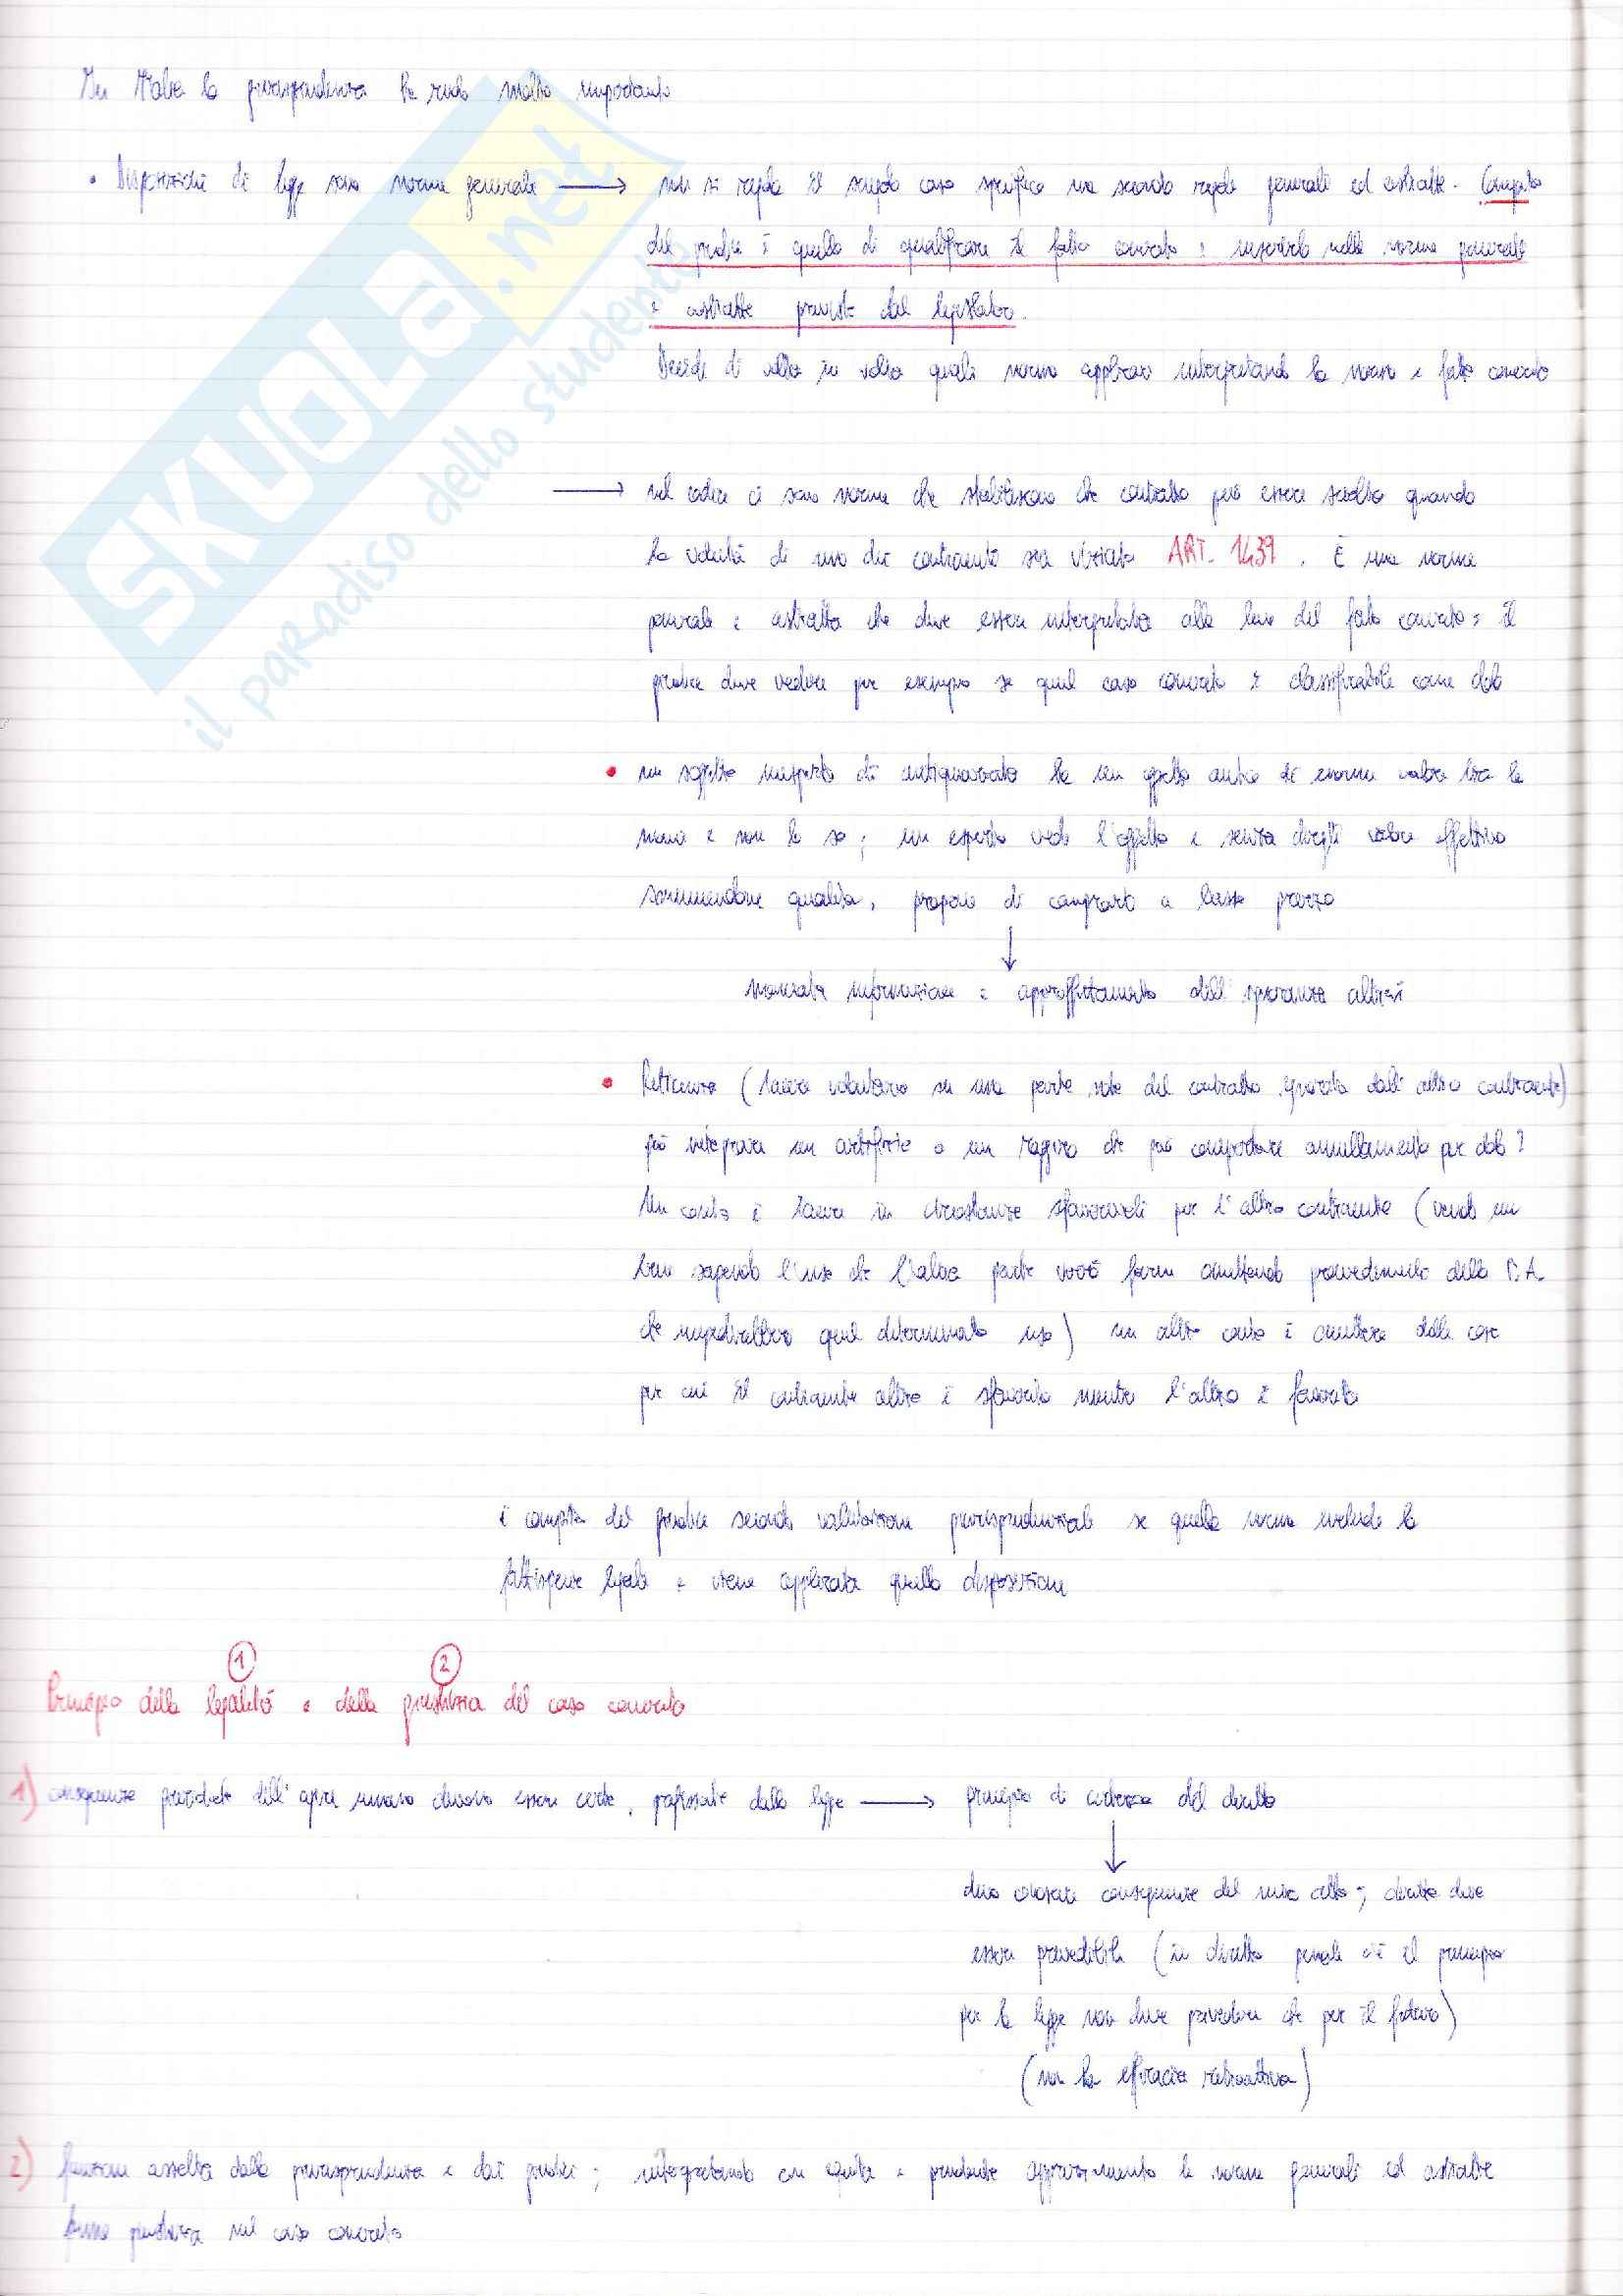 In Italia la giurisprudenza ha ruolo molto importante
• Disposizioni di legge sono norme generali → non si regola il singolo caso specifico ma secondo regole generali ed astratte. Compito
del giudice è quello di qualificare il fatto concreto e inserirlo nelle norme generali
e astratte previste dal legislatore.
Decide di volta in volta quali norme applicare interpretando la norma e fatto concreto
→ nel codice ci sono norme che stabiliscono che contratto può essere sciolto quando
la volontà di uno dei contraenti sia viziata ART. 1439. È una norma
generale e astratta che deve essere interpretata alla luce del fatto concreto: il
giudice deve vedere per esempio se quel caso concreto è classificabile come dolo
• un soggetto inesperto di antiquariato ha un oggetto antico di enorme valore tra le
mani e non lo sa; un esperto vede l'oggetto e senza dirgli valore effettivo
sminuendone qualità, propone di comprarlo a basso prezzo
↓
mancata informazione e approfittamento dell'ignoranza altrui
• Reticenza (tacere volontario su una parte nota del contratto ignorata dall'altro contraente)
può integrare un artificio o un raggiro che può comportare annullamento per dolo?
Un conto è tacere in circostanze sfavorevoli per l'altro contraente (vendo un
bene sapendo l'uso che l'altra parte vorrà farne omettendo provvedimenti della P.A.
che impedirebbero quel determinato uso) un altro conto è omettere delle cose
per cui il contraente altro è sfavorito mentre l'altro è favorito
è compito del giudice secondo valutazione giurisprudenziale se quella norma include la
fattispecie legale e viene applicata quella disposizione
1 2
Principio della legalità e della giustizia del caso concreto
1) conseguenze giuridiche dell'agire umano devono essere certe, prefissate dalla legge → principio di certezza del diritto
↓
devo conoscere conseguenze del mio atto; diritto deve
essere prevedibile (in diritto penale c'è il principio
per la legge non deve prevedere che per il futuro)
(non ha efficacia retroattiva)
2) funzione assolta dalla giurisprudenza e dai giudici; interpretando con equità e prudente apprezzamento le norme generali ed astratte
fanno giustizia nel caso concreto
SKUOLA.net
il paradiso dello studente